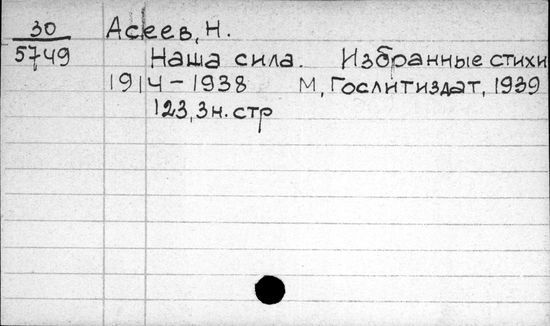 30
5749
Асеев, Н.
Наша сила. Избранные стихи
1914-1938 М, Гослитиздат, 1939
123, 3 н. стр